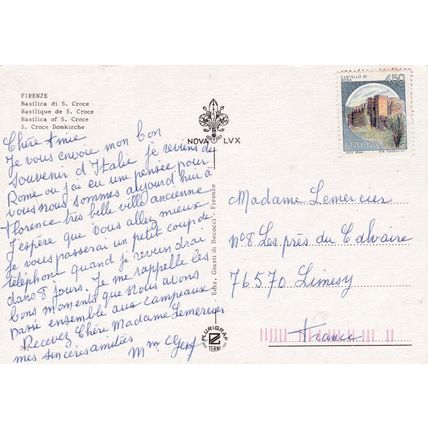 FIRENZE
Basilica di S. Croce
Basilique de S. Croce
Basilica of S. Croce
S. Croce Domkirche
NOVA LVX
CASTELLO DI
450
ITALIA
Chère Amie
Je vous envoie mon bon
souvenir d'Italie je reviens de
Rome ou j'ai eu une pensée pour
vous nous sommes aujourd'hui à
Florence très belle ville ancienne
J'espère que vous allez mieux
Je vous passerai un petit coup de
téléphone quand je reviendrai
dans 8 jours. Je me rappelle les
bons moments que nous avons
passé ensemble aux Campeaux
Recevez Chère Madame Lemercier
mes sincères amitiés
Mme
Ediz. Giusti di Becocci Firenze
PLURIGRAF
TERNI
Madame Lemercier
n°8 Les près du Calvaire
76570 Limesy
France